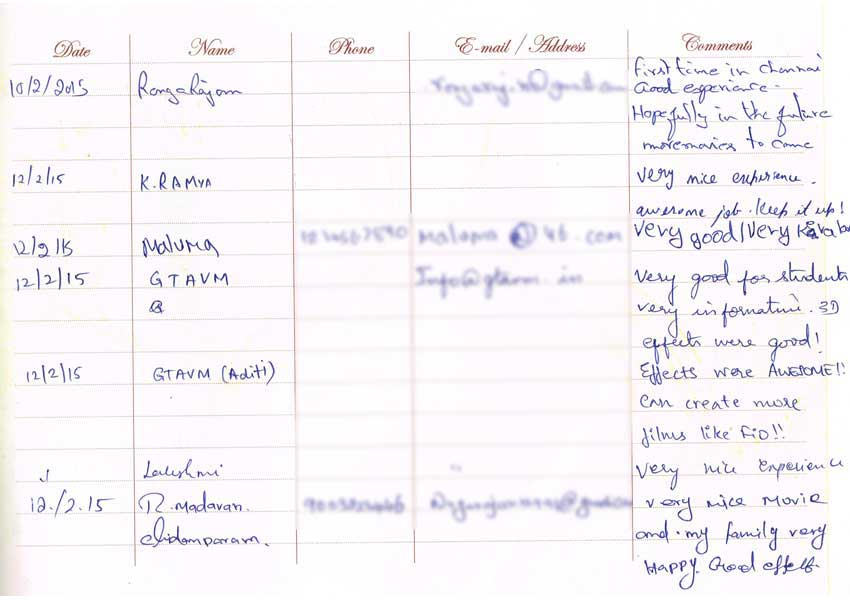 Date Name Phone E-mail / Address Comments
10/2/2015 Rangarajan First time in Chennai
Good experience.
Hopefully in the future
more movies to come
12/2/15 K.RAMYA Very nice experience.
awesome job. Keep it up!
12/2/15 Maluma Very good/Very
12/2/15 GTAVM Very good for students
very informative. 3D
effects were good!
12/2/15 GTAVM (Aditi) Effects were AWESOME!!
Can create more
films like Fio!!
Lakshmi Very nice Experience
12./2.15 R. Madavan. very nice Movie
Chidamparam. and my family very
Happy. Good